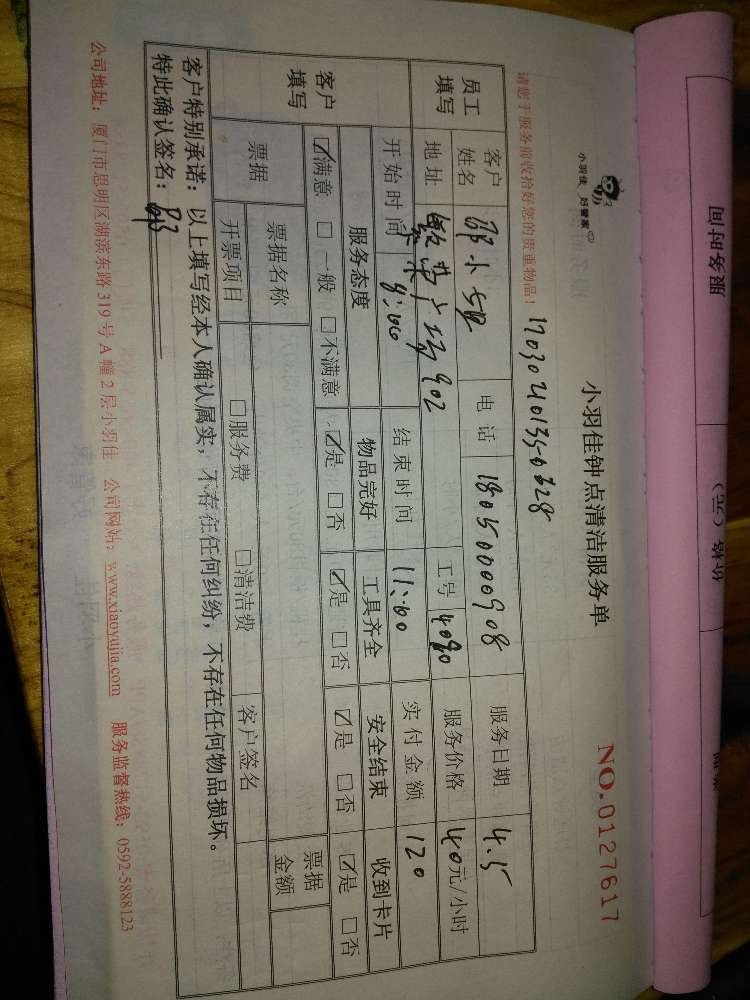 服务时间
价格（元）
小羽佳 好管家
小羽佳钟点清洁服务单
NO.0127617
请您于服务前收拾好您的贵重物品！
员工填写 客户姓名 邵小 电话 18050000908 服务日期 4.15
地址 广场902 工号 4090 服务价格 40元/小时
开始时间 8:00 结束时间 11:00 实付金额 120
客户填写 服务态度 物品完好 工具齐全 安全结束 收到卡片
☑满意 □一般 □不满意 ☑是 □否 ☑是 □否 ☑是 □否 ☑是 □否
票据 票据名称 票据金额
开票项目 □服务费 □清洁费 客户签名
客户特别承诺：以上填写经本人确认属实，不存在任何纠纷，不存在任何物品损坏。
特此确认签名：
公司地址：厦门市思明区湖滨东路319号A幢2层小羽佳 公司网站：www.xiaoyujia.com 服务监督热线：0592-5888123